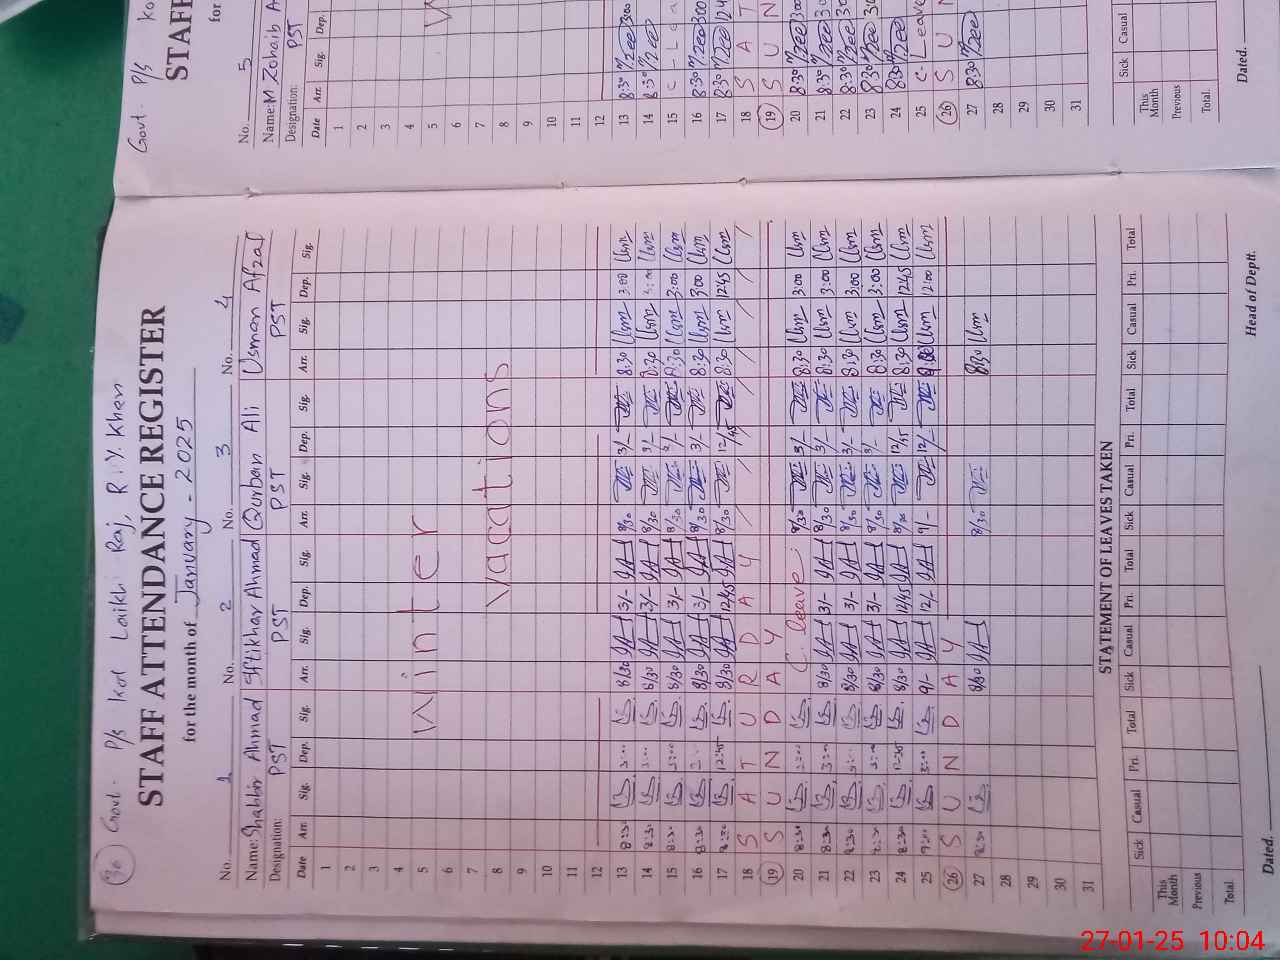 36 Govt. P/s Kot Laikhi Raj, R.Y. Khan
STAFF ATTENDANCE REGISTER
for the month of January - 2025
No. 1 No. 2 No. 3 No. 4
Name: Shabbir Ahmad Iftikhar Ahmad Qurban Ali Usman Afzal
Designation: PST PST PST PST
Date Arr. Sig. Dep. Sig. Arr. Sig. Dep. Sig. Arr. Sig. Dep. Sig. Arr. Sig. Dep. Sig.
1
2
3
4
5 Winter
6
7
8 Vacations
9
10
11
12
13 8:30 3:00 8/30 3/- 8/30 3/- 8:30 3:00
14 8:30 3:00 8/30 3/- 8/30 3/- 8:30 3:00
15 8:30 3:00 8/30 3/- 8/30 3/- 8:30 3:00
16 8:30 8/30 3/- 8/30 3/- 8:30 300
17 8:30 12:45 8/30 12/45 8/30 12/45 8:30 1245
18 SATURDAY
19 SUNDAY
20 8:30 3:00 C. leave. 8/30 3/- 8:30 3:00
21 8:30 3:00 8/30 3/- 8/30 3/- 8:30 3:00
22 8:30 3:00 8/30 3/- 8/30 3/- 8:30 3:00
23 8:30 3:00 8/30 3/- 8/30 3/- 8:30 3:00
24 8:30 12:45 8/30 12/45 8/30 12/45 8:30 1245
25 9:00 9/- 12/- 9/- 12/- 12:00
26 SUNDAY
27 8:30 8/30 8/30 8:30
28
29
30
31
STATEMENT OF LEAVES TAKEN
Sick Casual Pri. Total Sick Casual Pri. Total Sick Casual Pri. Total Sick Casual Pri. Total
This Month
Previous
Total.
Dated. Head of Deptt.
Govt. P/s Ko
STAFF
for
No. 5
Name: M Zohaib A
Designation: PST
Date Arr. Sig. Dep.
1
2
3
4
5 W
6
7
8
9
10
11
12
13 8:30 300
14 8:30
15 C-Lea
16 8:30 300
17 8:30 124
18 SAT
19 SUN
20 8:30 300
21 8:30 30
22 8:30 30
23 8:30 30
24 8:30
25 C-Leave
26 SUN
27 8:30
28
29
30
31
Sick Casual
This Month
Previous
Total.
Dated.
27-01-25 10:04